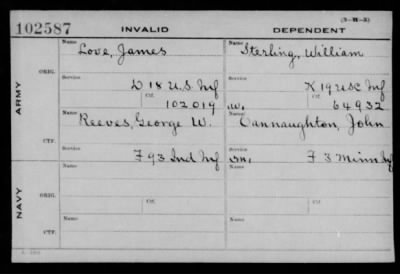 (3-M-3)
102587 INVALID DEPENDENT
Name Love, James Name Sterling, William
ARMY
ORIG.
Service D 18 U.S. Inf Service K 19 USC Inf
Ctf. 102019 W. Ctf. 64932
Name Reeves, George W. Name Cannaughton, John
CTF.
Service F 93 Ind Inf Service F 3 Minn
NAVY
Name Name
ORIG.
Ctf. Ctf.
Name Name
CTF.